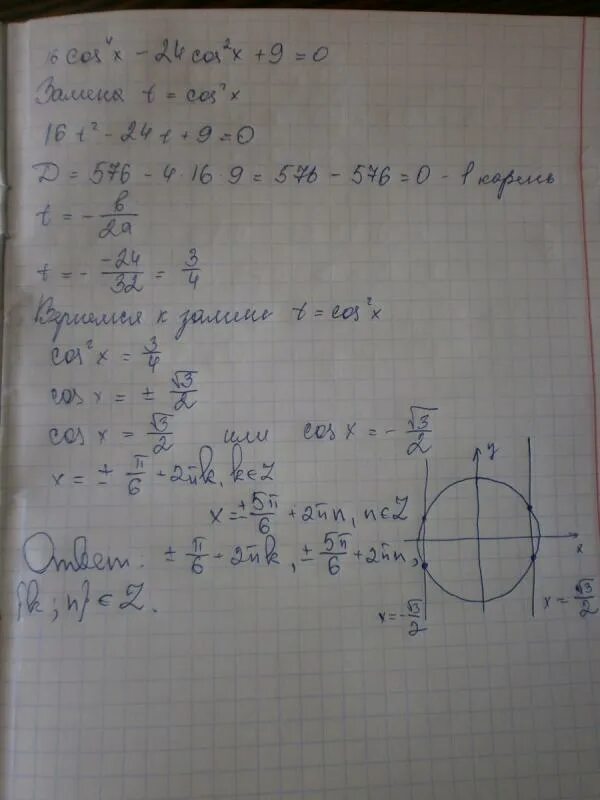 16 cos⁴x - 24 cos²x + 9 = 0
Замена t = cos²x
16t² - 24t + 9 = 0
D = 576 - 4·16·9 = 576 - 576 = 0 - 1 корень
t = - b/2a
t = - -24/32 = 3/4
Вернемся к замене t = cos²x
cos²x = 3/4
cos x = ± √3/2
cos x = √3/2 или cos x = - √3/2
x = ± π/6 + 2πk, k ∈ Z
x = ± 5π/6 + 2πn, n ∈ Z
Ответ: ± π/6 + 2πk, ± 5π/6 + 2πn,
{k; n} ∈ Z.
y
x
x = - √3/2
x = √3/2